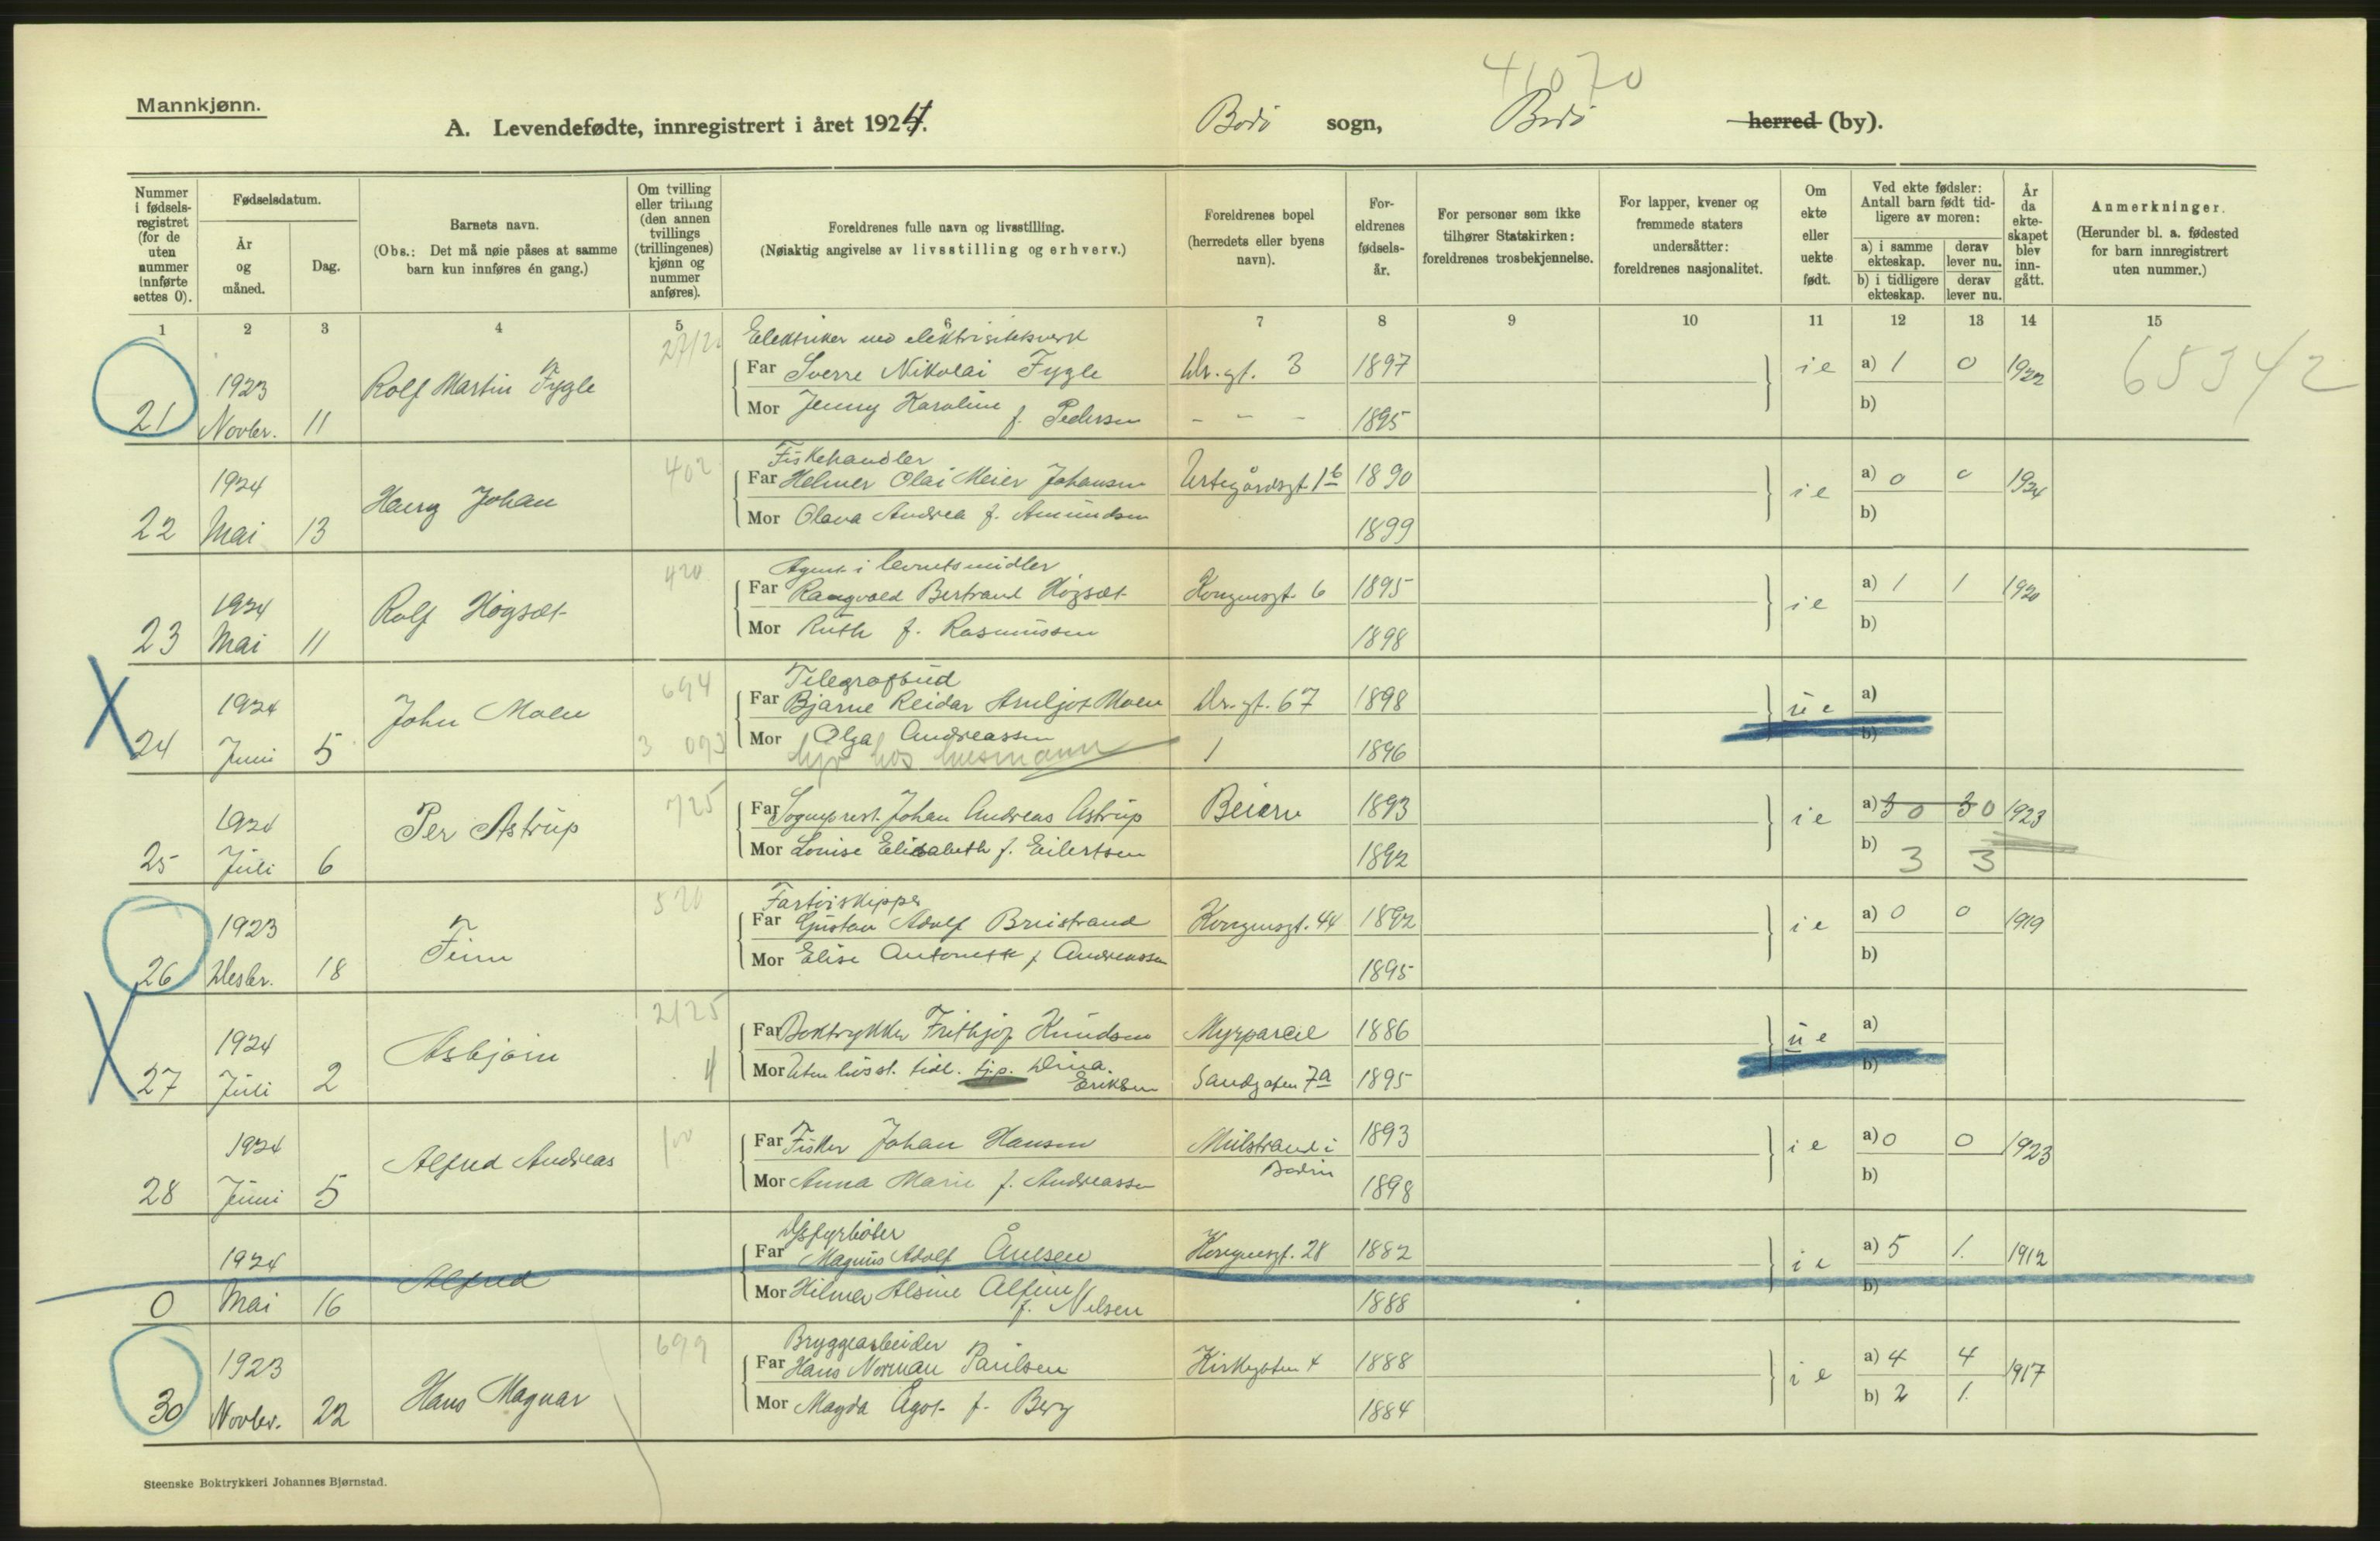 41070
Mannkjønn.
A. Levendefødte, innregistrert i året 1924.
Bodø sogn, Bodø herred (by).
Nummer i fødselsregistret (for de uten nummer innførte settes 0).
Fødselsdatum.
År og måned.
Dag.
Barnets navn.
(Obs.: Det må nøie påses at samme barn kun innføres én gang.)
Om tvilling eller trilling (den annen tvillings (trillingenes) kjønn og nummer anføres).
Foreldrenes fulle navn og livsstilling.
(Nøiaktig angivelse av livsstilling og erhverv.)
Foreldrenes bopel (herredets eller byens navn).
Foreldrenes fødselsår.
For personer som ikke tilhører Statskirken: foreldrenes trosbekjennelse.
For lapper, kvener og fremmede staters undersåtter: foreldrenes nasjonalitet.
Om ekte eller uekte født.
Ved ekte fødsler: Antall barn født tidligere av moren:
a) i samme ekteskap. derav lever nu.
b) i tidligere ekteskap. derav lever nu.
År da ekteskapet blev inngått.
Anmerkninger.
(Herunder bl. a. fødested for barn innregistrert uten nummer.)
1 2 3 4 5 6 7 8 9 10 11 12 13 14 15
Elektriker ved elektrisitetsverk
21 1923 Novbr. 11 Rolf Martin Fygle Far Sverre Nikolai Fygle 3 1897 ie a) 1 0 1922 65342
Mor Jenny Karoline f. Pedersen - - - 1895 b)
Fiskehandler
22 1924 Mai 13 Harry Johan 402 Far Helmer Olai Meier Johansen Urtegårdsgt 1b 1890 ie a) 0 0 1924
Mor Olava Andrea f. Amundsen 1899 b)
Agent i levnetsmidler
23 1924 Mai 11 Rolf Høgsæt 420 Far Ragnvald Bertrand Høgsæt Kongensgt. 6 1895 ie a) 1 1 1920
Mor Ruth f. Rasmussen 1898 b)
Telegrafbud
24 1924 Juni 5 John Moen 694 Far Bjarne Reidar Arnljot Moen 67 1898 ue a)
3 093 Mor Olga Andreassen 1 1896 b)
25 1924 Juli 6 Per Astrup 725 Far Sogneprest Johan Andreas Astrup Beiarn 1893 ie a) 3 0 3 0 1923
Mor Louise Elisabeth f. Eilertsen 1892 b) 3 3
Fartøiskipper
26 1923 Desbr. 18 Finn 520 Far Gustav Adolf Breistrand Kongensgt. 44 1892 ie a) 0 0 1919
Mor Elise Antonette f. Andreassen 1895 b)
27 1924 Juli 2 Asbjørn 2125 Far Boktrykker Frithjof Knudsen Myrparcel 1886 ue a)
4 Mor Uten livsst. tidl. tjp. Dina Eriksen Sandgaten 7a 1895 b)
28 1924 Juni 5 Alfred Andreas 100 Far Fisker Johan Hansen Mulstrand i Bodin 1893 ie a) 0 0 1923
Mor Anna Marie f. Andreassen 1898 b)
0 1924 Mai 16 Alfred Far Magnus Adolf Kongensgt. 28 1882 ie a) 5 1 1912
Mor Alsine f. Nilsen 1888 b)
Bryggearbeider
30 1923 Novbr. 22 Hans Magnar 699 Far Hans Norman Paulsen Kirkegaten 4 1888 ie a) 4 4 1917
Mor Magda Ågot f. Berg 1884 b) 2 1
Steenske Boktrykkeri Johannes Bjørnstad.